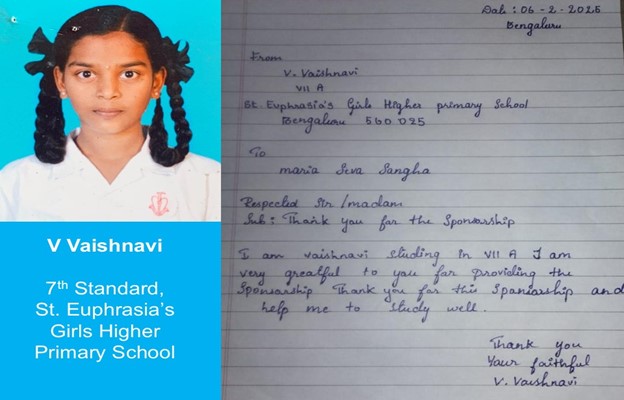 V Vaishnavi
7th Standard,
St. Euphrasia's
Girls Higher
Primary School
Date : 06 - 2 - 2025
Bengaluru
From
V. Vaishnavi
VII A
St. Euphrasia's Girls Higher primary School
Bengaluru 560 025
To
maria Seva Sangha
Respected Sir /madam
Sub : Thank you for the Sponsorship
I am vaishnavi studing in VII A I am
very greatful to you for providing the
Sponsorship Thank you for this Sponsorship and
help me to study well.
Thank you
Your faithful
V. Vaishnavi